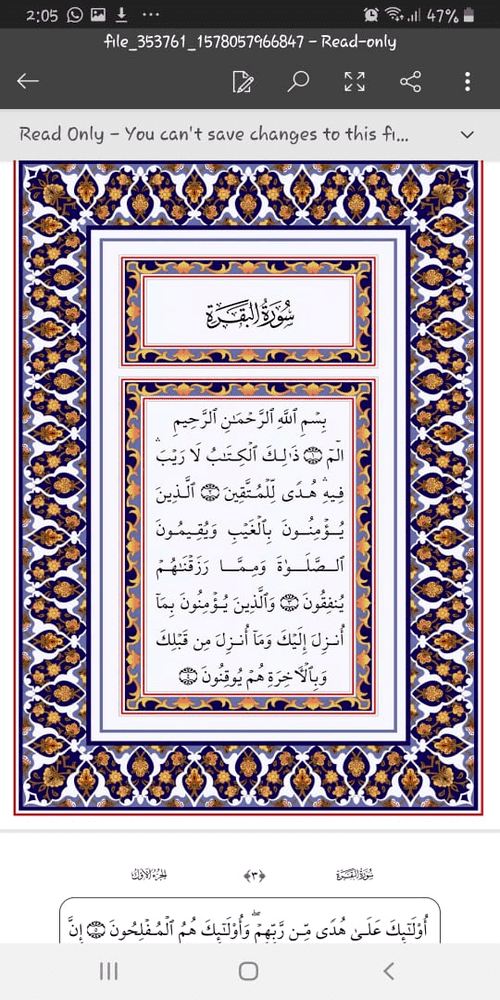 2:05 47%
file_353761_1578057966847 – Read-only
Read Only – You can't save changes to this fi...
سُورَةُ البَقَرَةِ
بِسْمِ ٱللَّهِ ٱلرَّحْمَٰنِ ٱلرَّحِيمِ
الٓمٓ ١ ذَٰلِكَ ٱلْكِتَٰبُ لَا رَيْبَ ۛ
فِيهِ ۛ هُدًى لِّلْمُتَّقِينَ ٢ ٱلَّذِينَ
يُؤْمِنُونَ بِٱلْغَيْبِ وَيُقِيمُونَ
ٱلصَّلَوٰةَ وَمِمَّا رَزَقْنَٰهُمْ
يُنفِقُونَ ٣ وَٱلَّذِينَ يُؤْمِنُونَ بِمَآ
أُنزِلَ إِلَيْكَ وَمَآ أُنزِلَ مِن قَبْلِكَ
وَبِٱلْأَخِرَةِ هُمْ يُوقِنُونَ ٤
سُورَةُ البَقَرَةِ ﴿٣﴾ الجُزْءُ الأَوَّلُ
أُوْلَٰٓئِكَ عَلَىٰ هُدًى مِّن رَّبِّهِمْ ۖ وَأُوْلَٰٓئِكَ هُمُ ٱلْمُفْلِحُونَ ٥ إِنَّ